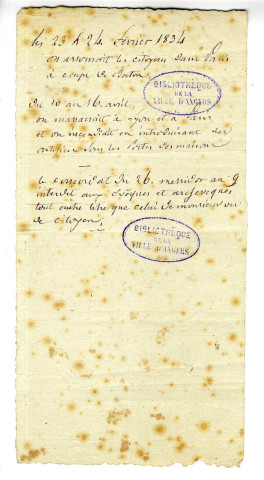 les 23 & 24 février 1834
on assommait les citoyens dans Paris
à coups de bâton
BIBLIOTHÈQUE
DE LA
VILLE D'ANGERS
Du 10 au 16 avril,
on massacrait à Lyon et à Paris
et on incendiait en introduisant des
artifices sous les Portes des maisons
le concordat du 26 messidor an 9
interdit aux évêques et archevêques
tout autre titre que celui de monsieur ou
de citoyen.
BIBLIOTHÈQUE
DE LA
VILLE D'ANGERS